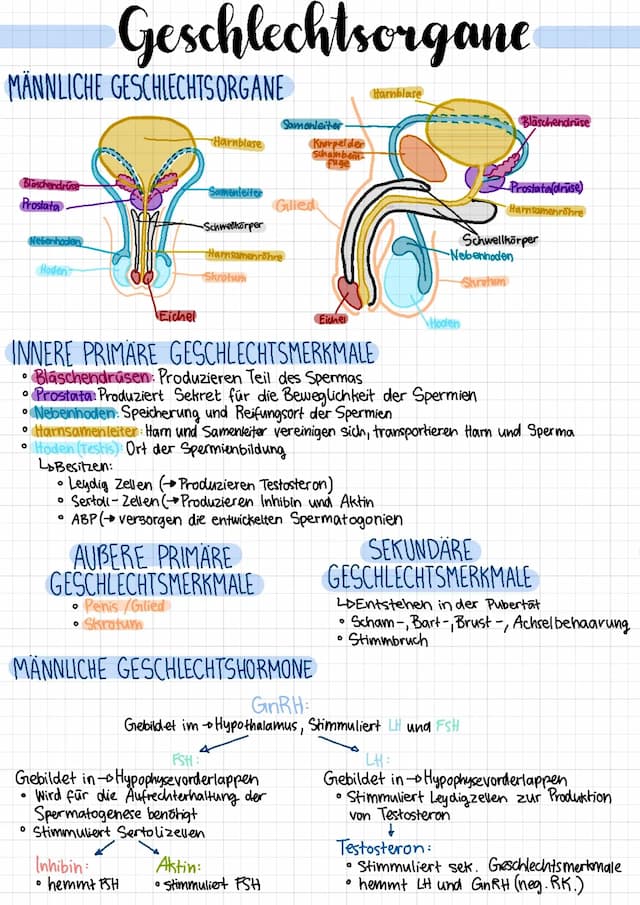 Geschlechtsorgane
MÄNNLICHE GESCHLECHTSORGANE
Harnblase
Bläschendrüse
Prostata
Samenleiter
Schwellkörper
Nebenhoden
Harnsamenröhre
Hoden
Skrotum
Eichel
Harnblase
Samenleiter
Bläschendrüse
Knorpel der
Schambein-
fuge
Prostata(drüse)
Glied
Harnsamenröhre
Schwellkörper
Nebenhoden
Skrotum
Eichel
Hoden
INNERE PRIMÄRE GESCHLECHTSMERKMALE
• Bläschendrüsen: Produzieren Teil des Spermas
• Prostata: Produziert Sekret für die Beweglichkeit der Spermien
• Nebenhoden: Speicherung und Reifungsort der Spermien
• Harnsamenleiter: Harn und Samenleiter vereinigen sich, transportieren Harn und Sperma
• Hoden (Testis): Ort der Spermienbildung
↳ Besitzen:
• Leydig Zellen (→ Produzieren Testosteron)
• Sertoli-Zellen (→ Produzieren Inhibin und Aktin
• ABP (→ versorgen die entwickelten Spermatogonien
ÄUßERE PRIMÄRE
GESCHLECHTSMERKMALE
• Penis /Glied
• Skrotum
SEKUNDÄRE
GESCHLECHTSMERKMALE
↳ Entstehen in der Pubertät
• Scham-, Bart-, Brust-, Achselbehaarung
• Stimmbruch
MÄNNLICHE GESCHLECHTSHORMONE
GnRH:
Gebildet im → Hypothalamus, Stimmuliert LH und FSH
FSH:
Gebildet in → Hypophysevorderlappen
• Wird für die Aufrechterhaltung der
Spermatogenese benötigt
• Stimmuliert Sertolizellen
Inhibin:
• hemmt FSH
Aktin:
• stimmuliert FSH
LH:
Gebildet in → Hypophysevorderlappen
• Stimmuliert Leydigzellen zur Produktion
von Testosteron
Testosteron:
• Stimmuliert sek. Geschlechtsmerkmale
• hemmt LH und GnRH (neg. RK.)